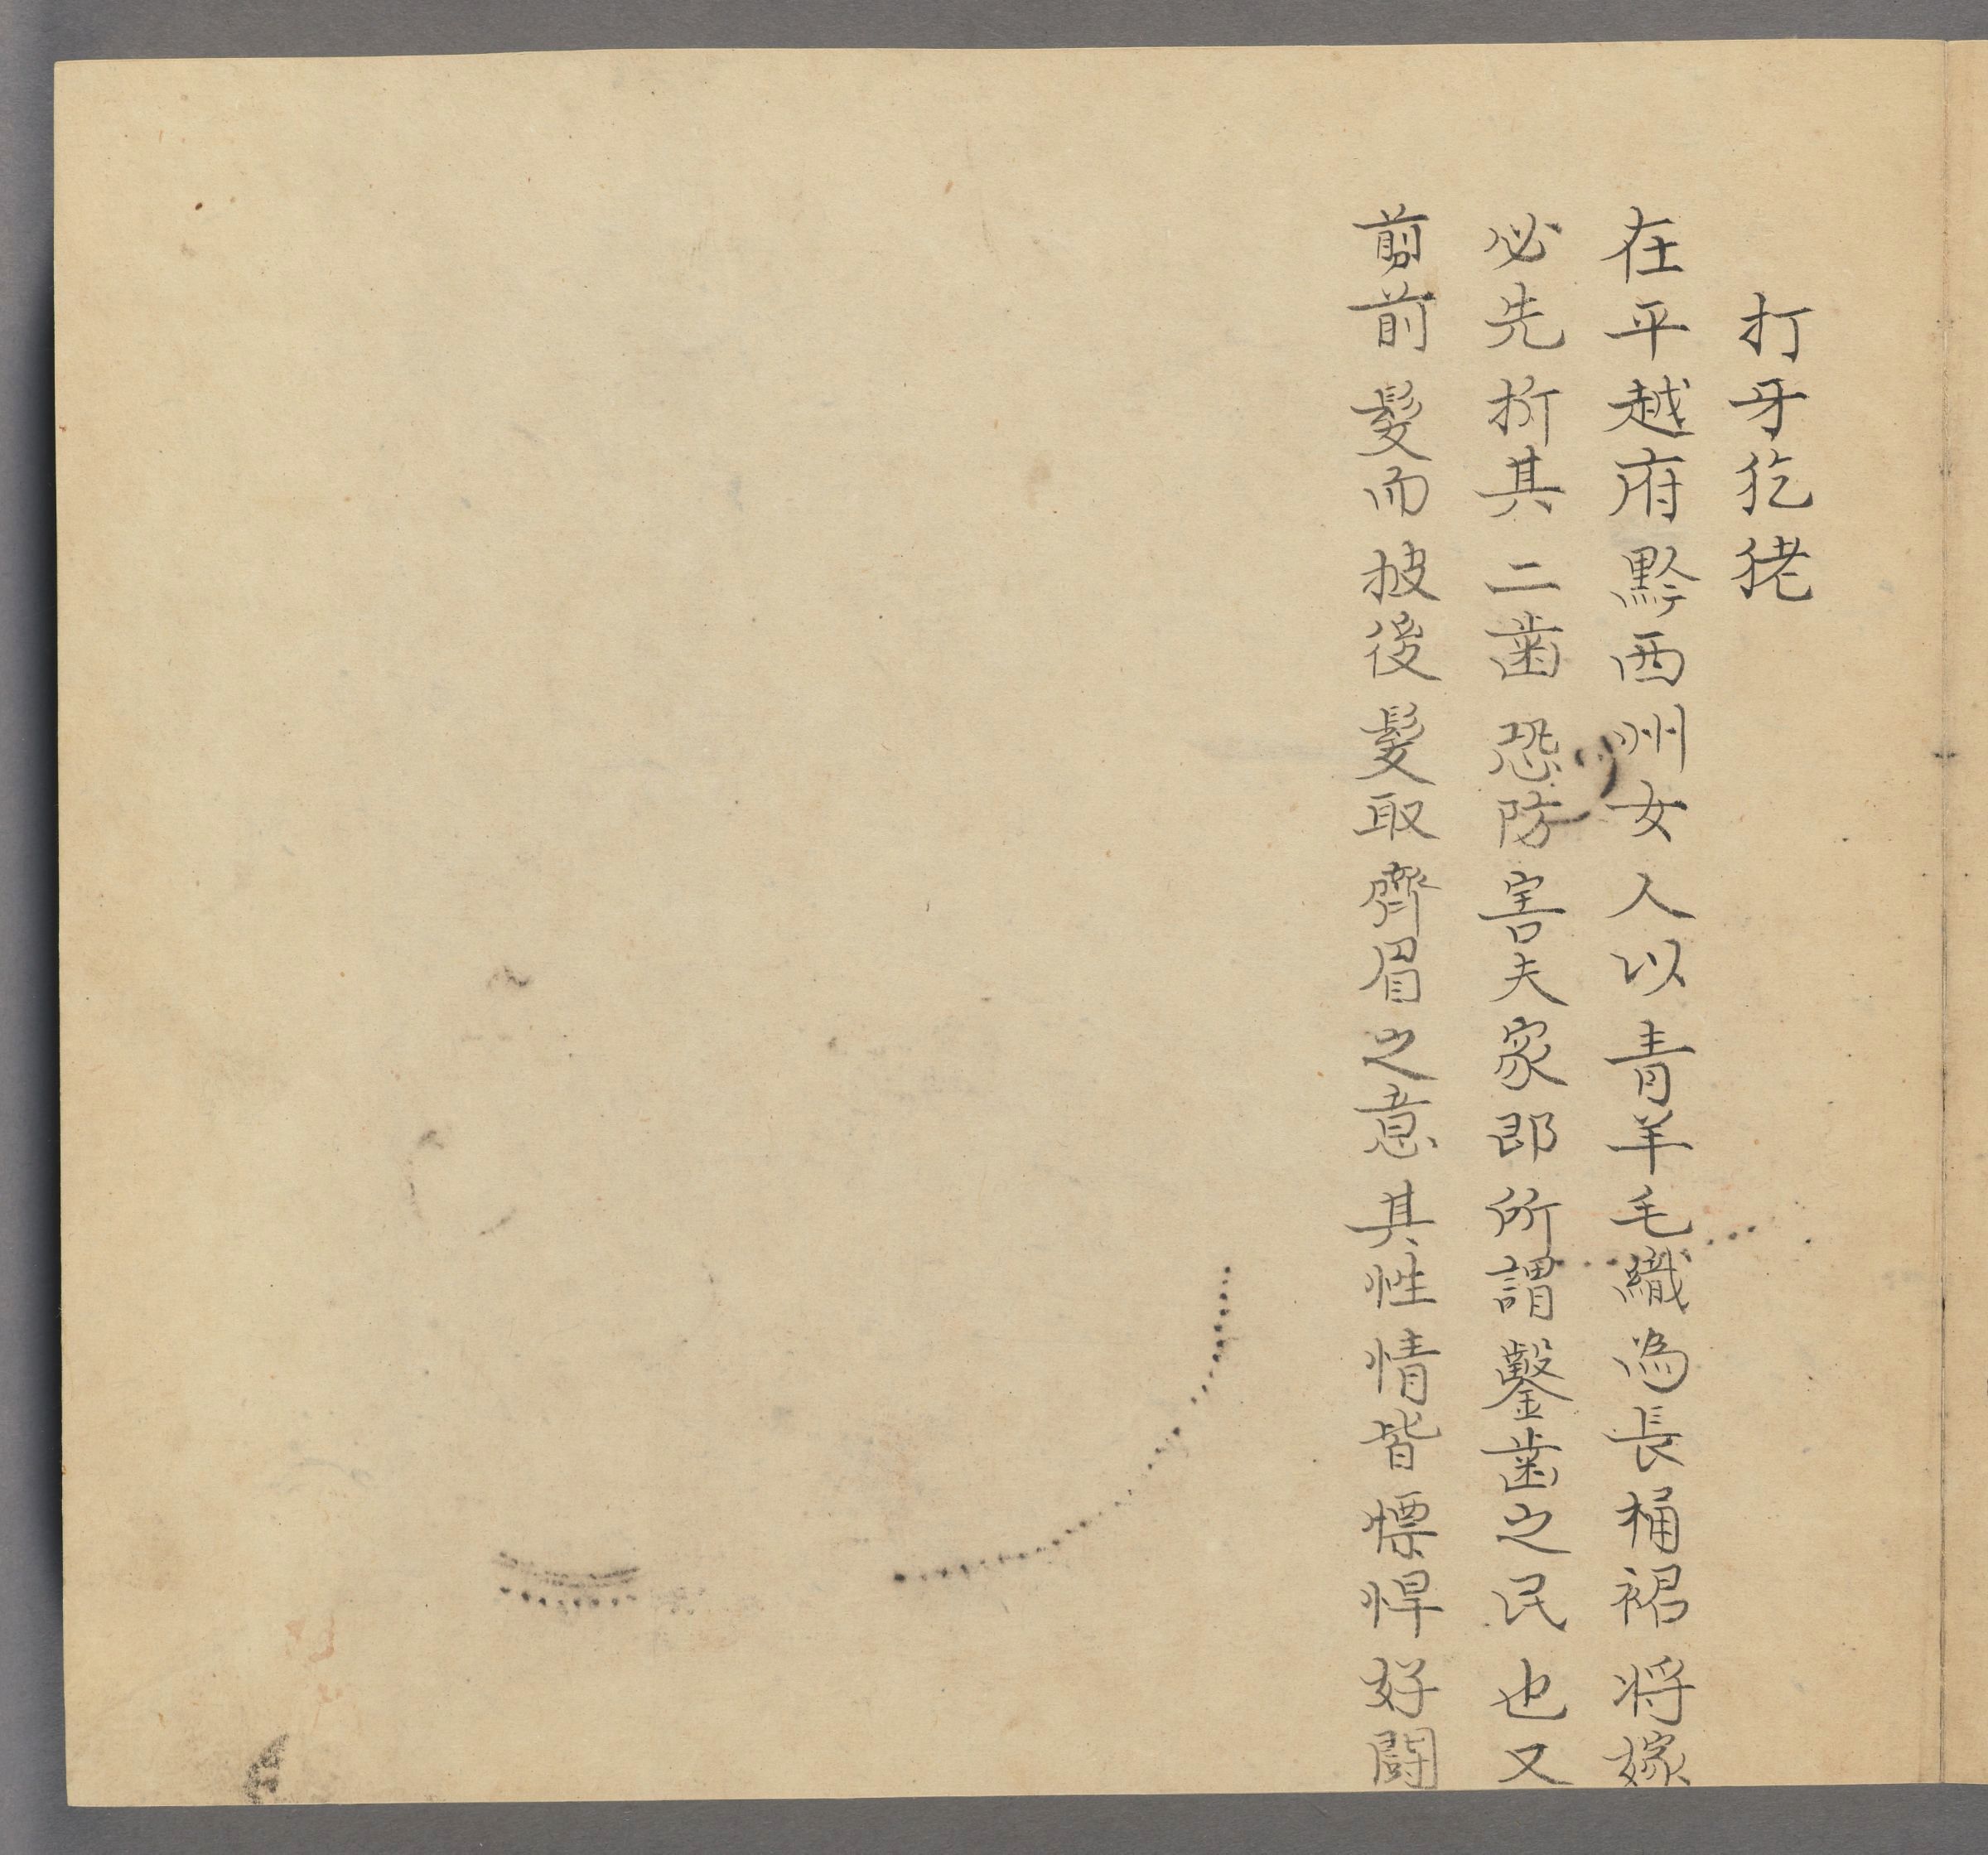 打牙犵狫
在平越府黔西州女人以青羊毛織為長桶裙將嫁
必先折其二齒恐防害夫家即所謂鑿齒之民也又
剪前髮而披後髮取齊眉之意其性情皆慓悍好鬪